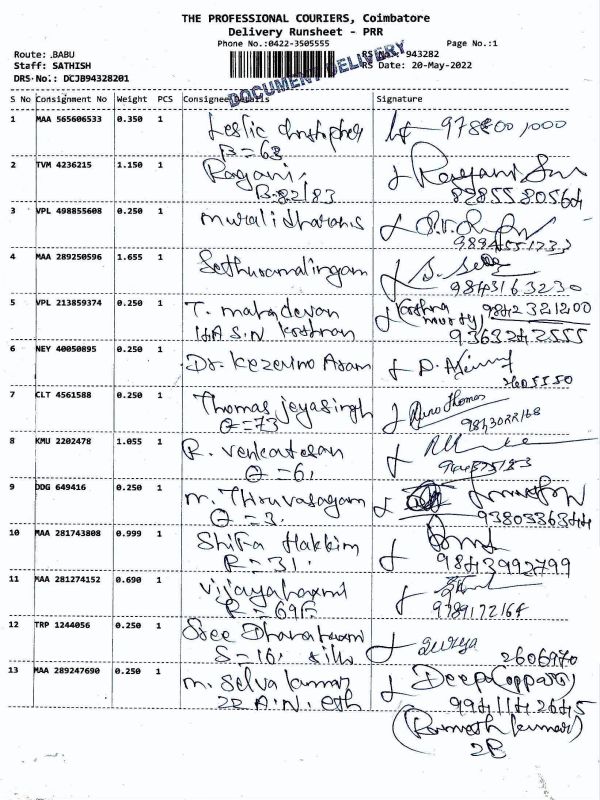 THE PROFESSIONAL COURIERS, Coimbatore
Delivery Runsheet - PRR
Phone No.:0422-3505555 Page No.:1
Route: .BABU RS No.: 943282
Staff: SATHISH RS Date: 20-May-2022
DRS No.: DCJB94328201
DOCUMENT DELIVERY
S No Consignment No Weight PCS Consignee Details Signature
1 MAA 565606533 0.350 1 Leslie christopher
B=68
2 TVM 4236215 1.150 1 Ragani,
B-82/83 8285580564
3 VPL 498855608 0.250 1 muralidharans
9894551733
4 MAA 289250596 1.655 1 Sethuramalingam
9843163230
5 VPL 213859374 0.250 1 T. mahadevan Krishna murty 9842321200
14A S.N 9363242555
6 NEY 40050895 0.250 1 Dr.
2605550
7 CLT 4561588 0.250 1 Thomas jeyasingh Thomas
Q=73 9843022168
8 KMU 2202478 1.055 1 R. venkatesan
Q=6,
9 DDG 649416 0.250 1 m. Thiruvasagam
Q=3. 9380336344
10 MAA 281743808 0.999 1 Shifa Hakkim
R=31. 9843992799
11 MAA 281274152 0.690 1 vijayalaxmi
R=69F. 9789172164
12 TRP 1244056 0.250 1 Sree surya
S=16, silks 2606970
13 MAA 289247690 0.250 1 m. Selvakumar Deepa (oppas)
22 A.N. 9941142645
kumar)
2B